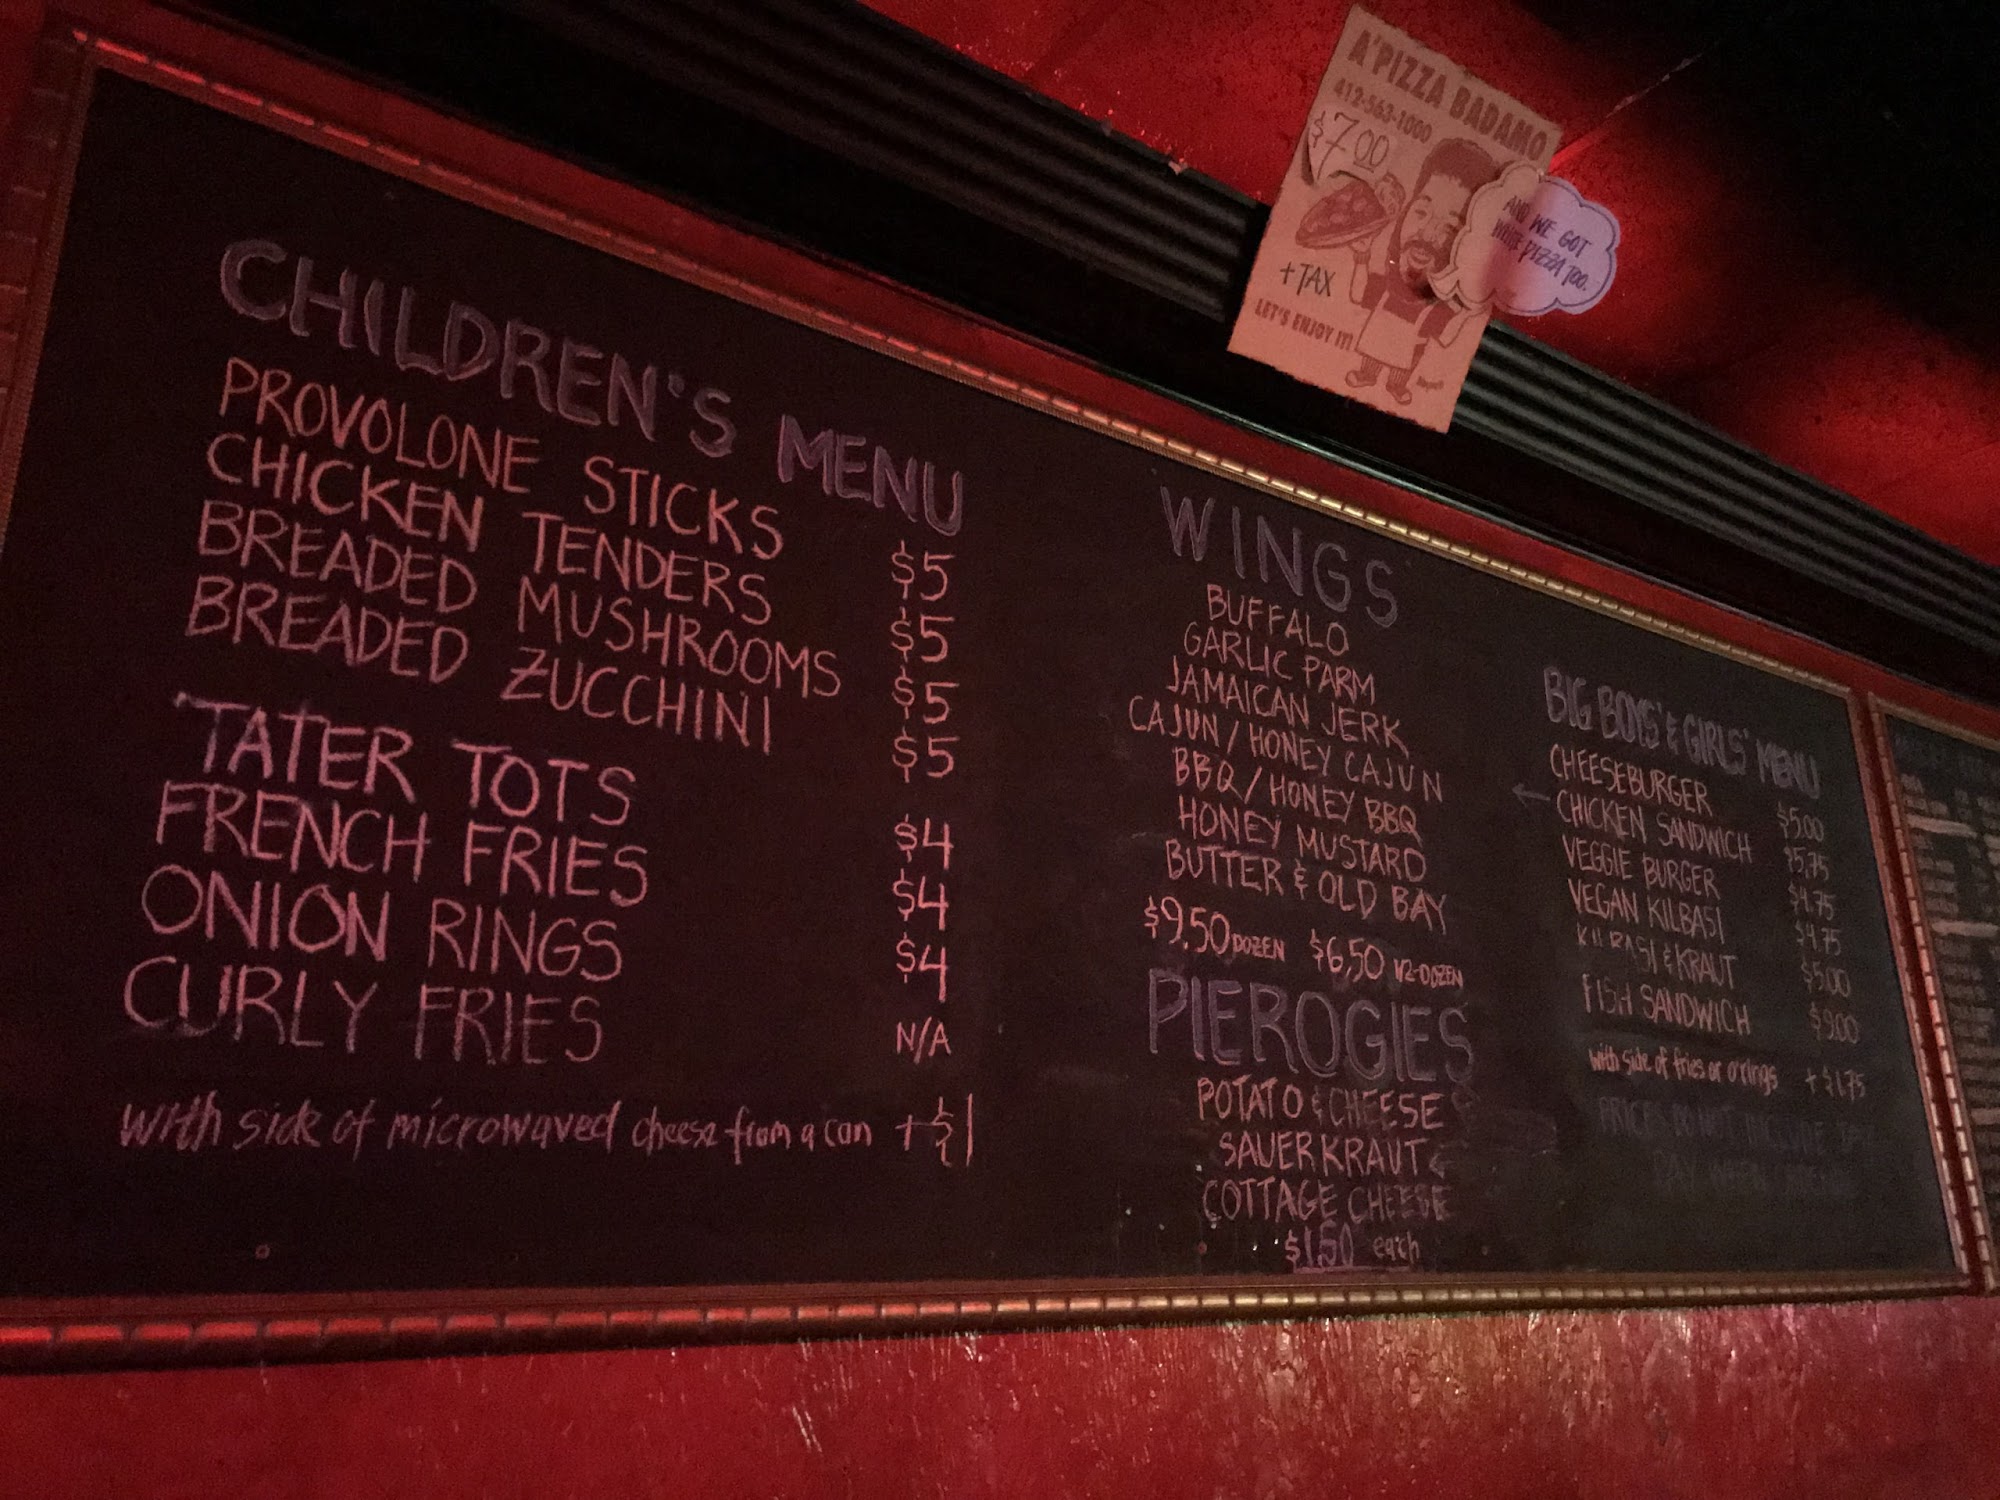 A'PIZZA BADAMO
412-563-1000
$7.00
+TAX
LET'S ENJOY IT!
AND WE GOT
WHITE PIZZA TOO.
CHILDREN'S MENU
PROVOLONE STICKS $5
CHICKEN TENDERS $5
BREADED MUSHROOMS $5
BREADED ZUCCHINI $5
TATER TOTS $4
FRENCH FRIES $4
ONION RINGS $4
CURLY FRIES N/A
with side of microwaved cheese from a can + $1
WINGS
BUFFALO
GARLIC PARM
JAMAICAN JERK
CAJUN / HONEY CAJUN
BBQ / HONEY BBQ
HONEY MUSTARD
BUTTER & OLD BAY
$9.50 DOZEN $6.50 1/2-DOZEN
PIEROGIES
POTATO & CHEESE
SAUERKRAUT
COTTAGE CHEESE
$1.50 each
BIG BOYS' & GIRLS' MENU
CHEESEBURGER $5.00
CHICKEN SANDWICH $5.75
VEGGIE BURGER $4.75
VEGAN KILBASI $4.75
KILBASI & KRAUT $5.00
FISH SANDWICH $9.00
with side of fries or o'rings + $1.75
PRICES DO NOT INCLUDE TAX